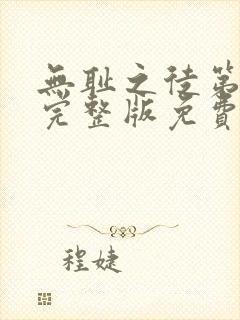 無耻之徒第
完整版免費
程婕